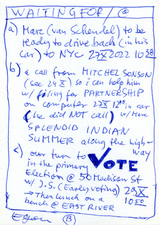 WAITING FOR/@
a) Marc (van Schendel) to be
ready to drive back (in his
car) to NYC 27X2022 10 30
b) a call from MITCHEL SONSON
(see 24X) so i can help him
w/ filing for PARTNERSHIP
on computer 27X 12 25 in car
(he did NOT call) w/ Marc
SPLENDID INDIAN
SUMMER along the high-
way
c) our turn to VOTE
in the primary
Election @ 50 Madison St
w/ J.S. (Early voting) 29X
→ then lunch on a 10 50
bench @ EAST RIVER